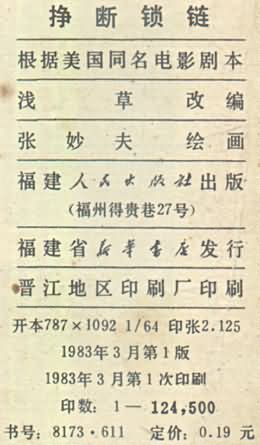 挣断锁链
根据美国同名电影剧本
浅草改编
张妙夫绘画
福建人民出版社出版
(福州得贵巷27号)
福建省新华书店发行
晋江地区印刷厂印刷
开本787×1092 1/64 印张2.125
1983年3月第1版
1983年3月第1次印刷
印数：1—124,500
书号：8173·611 定价：0.19元